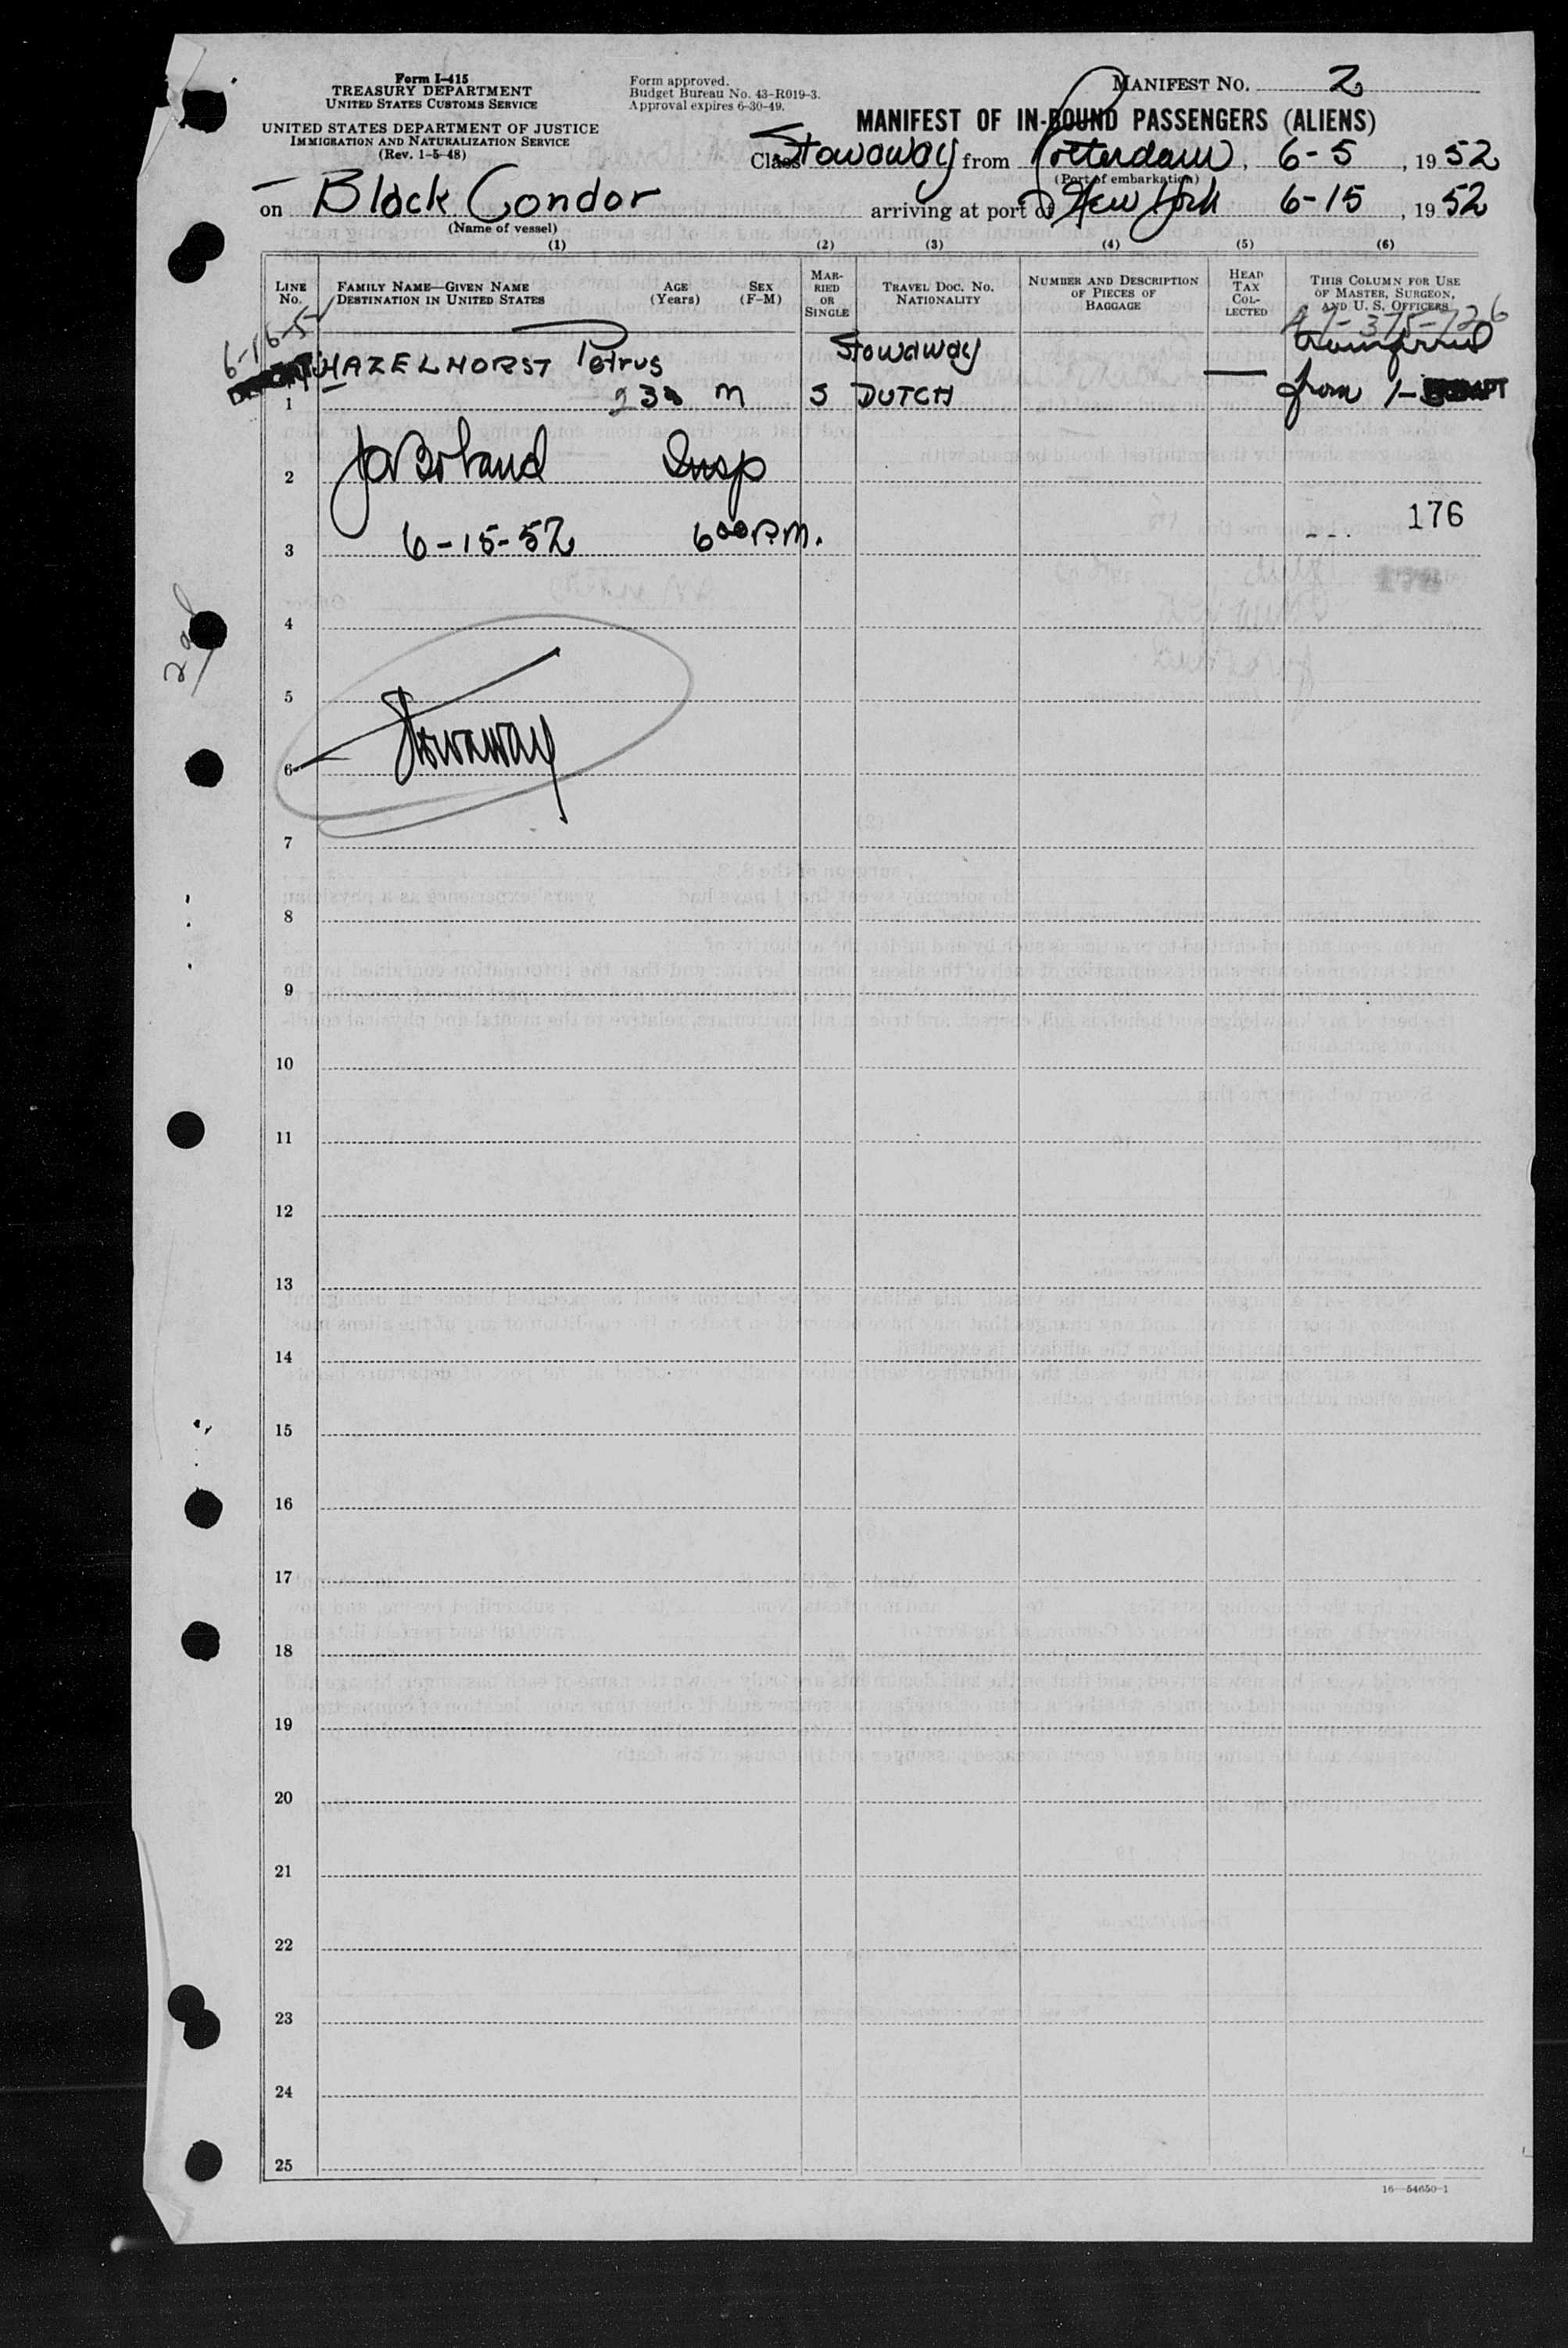 Form I-415
TREASURY DEPARTMENT
UNITED STATES CUSTOMS SERVICE
UNITED STATES DEPARTMENT OF JUSTICE
IMMIGRATION AND NATURALIZATION SERVICE
(Rev. 1-5-48)
Form approved.
Budget Bureau No. 43-R019-3.
Approval expires 6-30-49.
MANIFEST NO. 2
MANIFEST OF IN-BOUND PASSENGERS (ALIENS)
Class Stowaway from Rotterdam, 6-5, 1952
(Port of embarkation)
on Black Condor arriving at port of New York 6-15, 1952
(Name of vessel)
(1) (2) (3) (4) (5) (6)
LINE No.
FAMILY NAME—GIVEN NAME
DESTINATION IN UNITED STATES
AGE (Years)
SEX (F-M)
MARRIED OR SINGLE
TRAVEL DOC. NO. NATIONALITY
NUMBER AND DESCRIPTION OF PIECES OF BAGGAGE
HEAD TAX COLLECTED
THIS COLUMN FOR USE OF MASTER, SURGEON, AND U. S. OFFICERS
375-726
HAZELHORST Petrus Stowaway transferred
1 23 M S DUTCH — from 1-
2 Insp
176
3 6-15-52 6 00 P.M.
4
5
Stowaway
6
7
8
9
10
11
12
13
14
15
16
17
18
19
20
21
22
23
24
25
16—54650-1